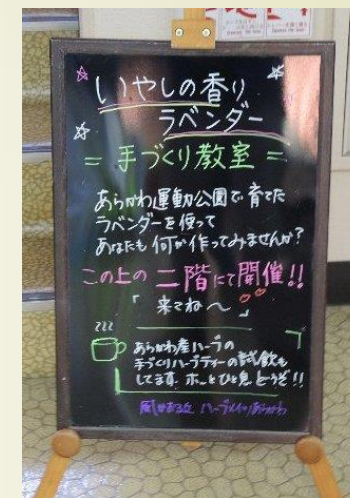 いやしの香り
ラベンダー
= 手づくり教室 =
あらかわ運動公園で育てた
ラベンダーを使って
あなたも何か作ってみませんか?
この上の二階にて開催!!
「来てね～」
あらかわ産ハーブの
手づくりハーブティーの試飲も
してます。ホッとひと息どうぞ!!
風かおる丘 ハーブメイツあらかわ